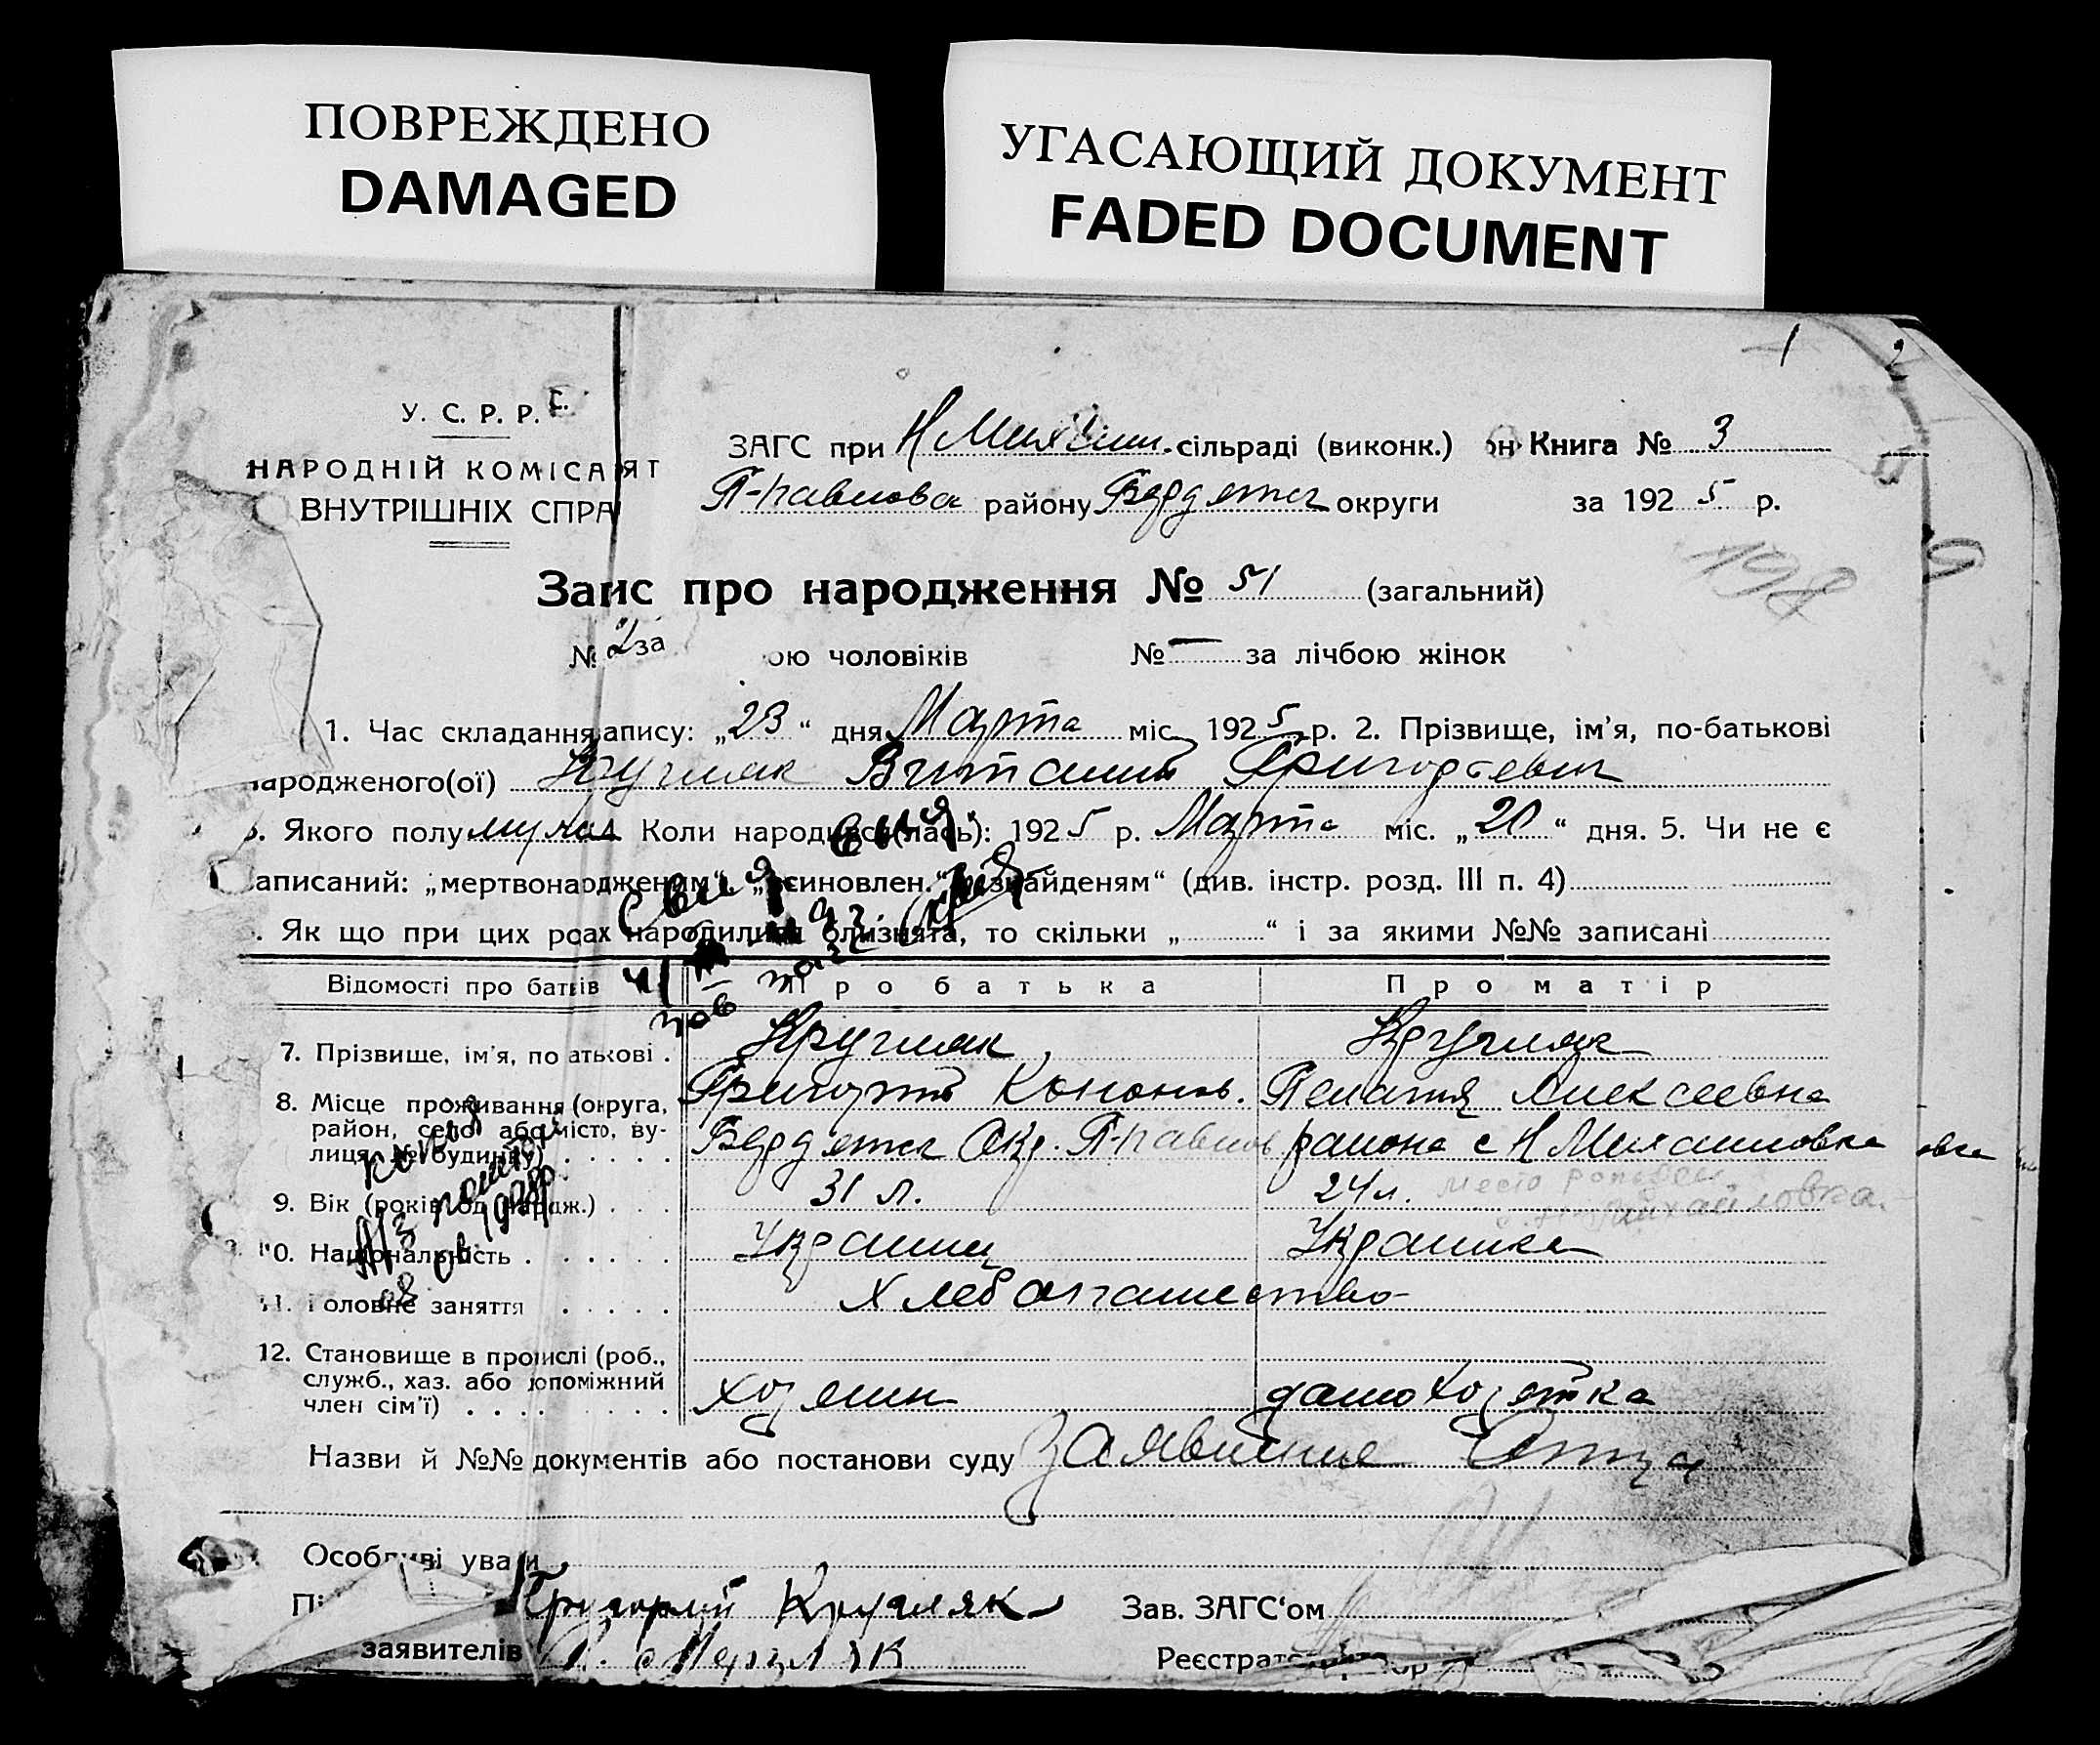 ПОВРЕЖДЕНО
DAMAGED
УГАСАЮЩИЙ ДОКУМЕНТ
FADED DOCUMENT
1
У. С. Р. Р.
НАРОДНІЙ КОМІСА ЯТ
ВНУТРІШНІХ СПРА
ЗАГС при сільраді (виконк.) Книга № 3
П-павловск району Бердянск округи за 1925 р.
198
Заис про народження № 51 (загальний)
№ 2 за ою чоловіків № — за лічбою жінок
1. Час складання апису: „23“ дня Марта міс. 1925 р. 2. Прізвище, ім'я, по-батькові
народженого(ої) Кругляк Виталий Григорьевич
Якого полу Коли народився(лась): 1925 р. Марта міс. „20“ дня. 5. Чи не є
аписаний: „мертвонародженим“, „всиновлен.“ „знайденям“ (див. інстр. розд. III п. 4)
. Як що при цих родах народилися близнята, то скільки „ “ і за якими №№ записані
Відомості про батьків Про батька Про матір
7. Прізвище, ім'я, по атькові . Кругляк, Кругляк
Григорий Кононов. Пелагия Алексеевна
8. Місце проживання (округа, район, село або місто, вулиця № будинку) Бердянск Окр. П-павлов района с Н Михайловка
9. Вік (років од нардж.) 31 л. 24 л.
Место рожден
с. Н-Михайловка.
10. Національність Украинец Украинка
11. Головне заняття Хлебопашество
12. Становище в промислі (роб., служб., хаз. або допоміжний член сім'ї) хозяин домохозяйка
Назви й №№ документів або постанови суду Заявление Отца
Особливі уваги
Григорий Кругляк Зав. ЗАГС'ом
заявителів